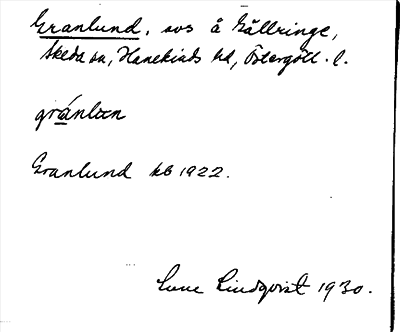 Granlund, sos å Gällringe,
Skeda sn, Hanekinds hd, Östergötl. l.
gránlun
Granlund kb 1922.
Sune Lindqvist 1930.